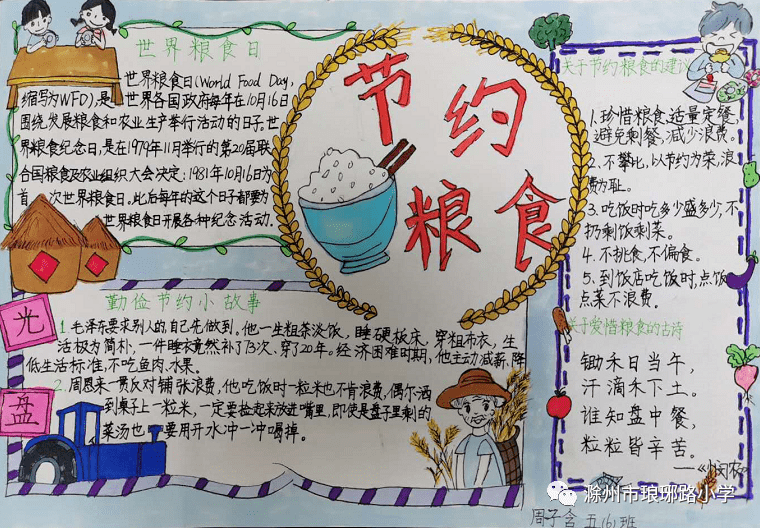 世界粮食日
世界粮食日(World Food Day,
缩写为WFD),是世界各国政府每年在10月16日
围绕发展粮食和农业生产举行活动的日子。世
界粮食纪念日,是在1979年11月举行的第20届联
合国粮食及农业组织大会决定:1981年10月16日为
首次世界粮食日。此后每年的这个日子都要为
世界粮食日开展各种纪念活动.
节约
粮食
关于节约粮食的建议
1.珍惜粮食,适量定餐,
避免剩餐,减少浪费。
2.不攀比,以节约为荣,浪
费为耻。
3.吃饭时吃多少盛多少,不
扔剩饭剩菜。
4.不挑食,不偏食。
5.到饭店吃饭时,点饭
点菜不浪费.
关于爱惜粮食的古诗
锄禾日当午,
汗滴禾下土。
谁知盘中餐,
粒粒皆辛苦。
——《悯农》
光
盘
勤俭节约小故事
1.毛泽东要求别人的自己先做到,他一生粗茶淡饭,睡硬板床,穿粗布衣,生
活极为简朴,一件睡衣竟然补了73次、穿了20年。经济困难时期,他主动减薪、降
低生活标准,不吃鱼肉、水果。
2.周恩来一贯反对铺张浪费,他吃饭时一粒米也不肯浪费,偶尔洒
到桌子上一粒米,一定要捡起来放进嘴里,即使是盘子里剩的
菜汤也要用开水冲一冲喝掉。
滁州市琅琊路小学
周子含 五(6)班